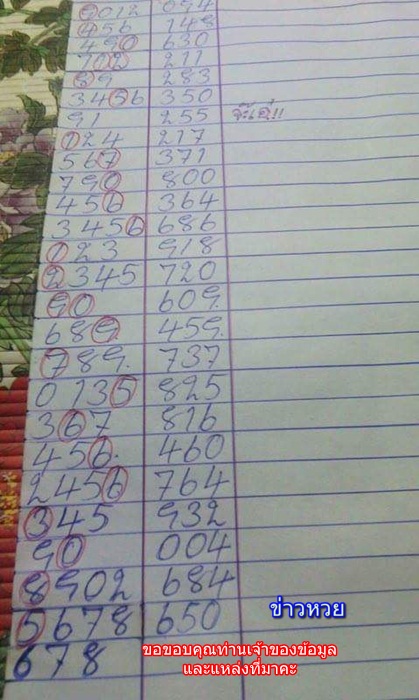 9012 094
456 148
490 630
702 211
89 283
34556 350
91 255 จะเอ๋!!
124 217
567 371
790 800
456 364
3456 686
023 918
2345 720
90 609
689 459
789 737
0135 825
367 816
456 460
2456 764
345 932
90 004
8902 684
5678 650
ข่าวหวย
678
ขอขอบคุณท่านเจ้าของข้อมูล
และแหล่งที่มาคะ